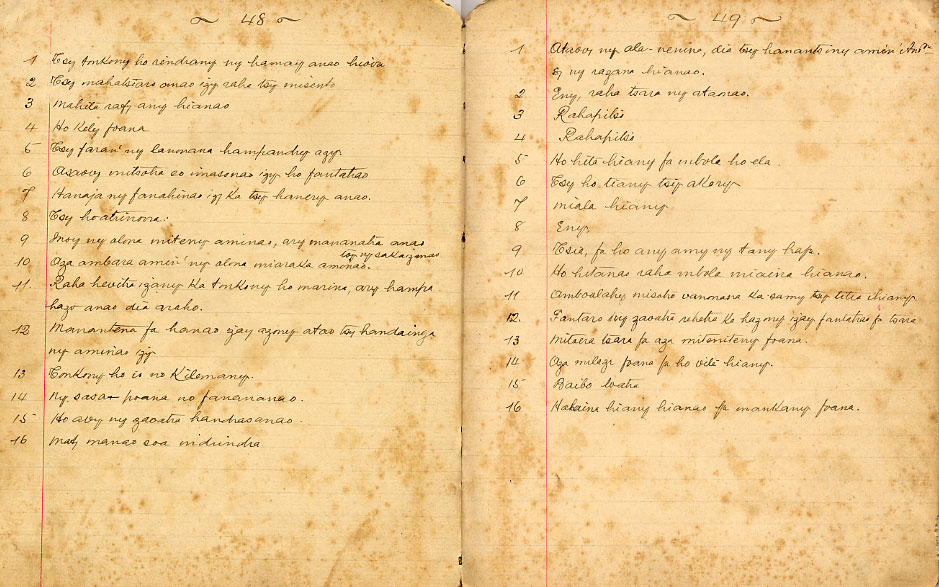 ~ 48 ~
1 Tsy tonkony ho rendrany ny hamay anao hiova
2 Tsy mahatsiaro anao izy raha tsy misento
3 Mahita raty any hianao
4 Ho kely foana
5 Tsy faran' ny lanonana hampandry azy.
6 Asaovy mitsoha eo imasonao izy ho fantatrao
7 Hanaja ny fanahinao izy ka tsy hanery anao.
8 Tsy ho atrinona.
9 Inoy ny olona miteny aminao, ary mananatra anao
toy ny sakaizanao
10 Aza ambara amin' ny olona miaraka aminao.
11 Raha hevitra izany ka tonkony ho marina, ary hampa
hazo anao dia araho.
12 Manantena fa hanao izay azony atao tsy handainga
ny aminao izy
13 Tonkony ho is no kilemany.
14 Ny sasa foana no fanananao.
15 Ho avy ny zavatra handrasanao.
16 Maty manao soa indrindra
~ 49 ~
1 Ataovy ny ala-nenina, dia tsy hananto iny amin' And
ny ny razana hianao.
2 Eny, raha tsara ny ataonao.
3 Rahapitso
4 Rahapitso
5 Ho hita hiany fa mbola ho ela.
6 Tsy ho tiany tsy akory
7 Miala hiany
8 Eny.
9 Tsia, fa ho any amy ny tany hafa.
10 Ho hitanao raha mbola miaina hianao.
11 Amboalahy misaho vanonana ka samy tsy titra ihiany
12. Fantaro ny zavatra rehetra ka hazony izay fantatrao fa tsara
13 Mitoera tsara fa aza miteniteny foana.
14 Aza milaza foana fa ho vita hiany.
15 Baibo loatra
16 Halaina hiany hianao fa mankany foana.